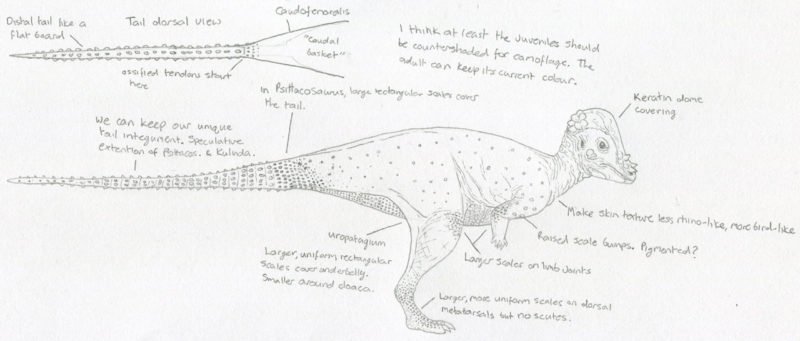 Distal tail like a
flat board
Tail dorsal view
Caudofemoralis
"caudal
basket"
ossified tendons start
here
I think at least the juveniles should
be countershaded for camoflage. The
adult can keep its current colour.
In Psittacosaurus, large rectangular scales cover
the tail.
Keratin dome
covering
We can keep our unique
tail integument. Speculative
extention of Psittacos. & Kulinda.
Make skin texture less rhino-like, more bird-like
Uropatagium
Raised scale bumps. Pigmented?
Larger, uniform, rectangular
scales cover underbelly.
Smaller around cloaca.
Larger scales on limb joints
Larger, more uniform scales on dorsal
metatarsals but no scutes.